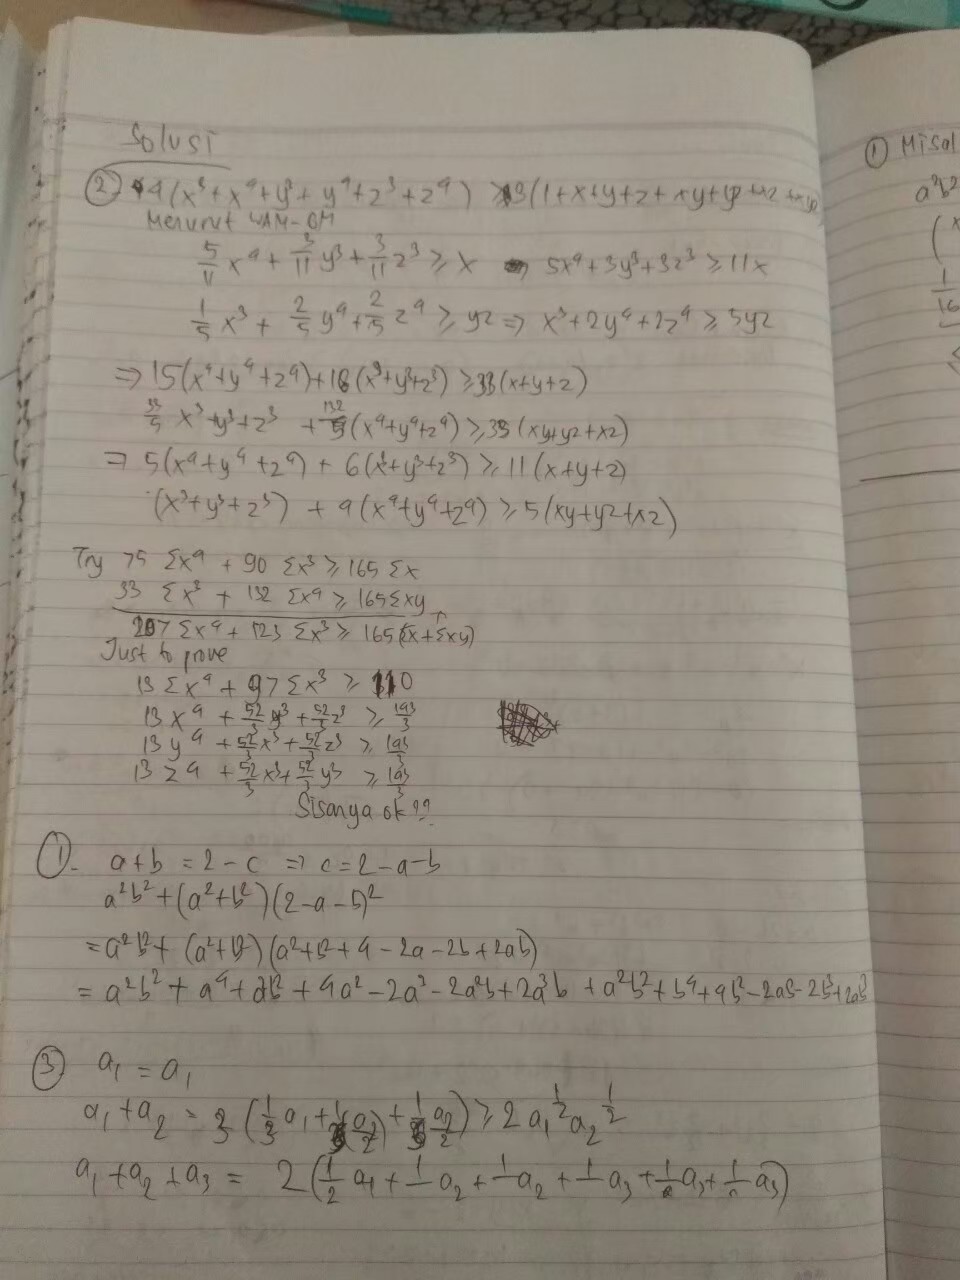 Solusi
② 4(x³+x⁴+y³+y⁴+z³+z⁴) ≥ 3(1+x+y+z+xy+yz+xz+xyz
Menurut WAM-GM
5/11 x⁴ + 3/11 y³ + 3/11 z³ ≥ x 5x⁴+3y³+3z³ ≥ 11x
1/5 x³ + 2/5 y⁴ + 2/5 z⁴ ≥ yz ⇒ x³+2y⁴+2z⁴ ≥ 5yz
⇒ 15(x⁴+y⁴+z⁴)+18(x³+y³+z³) ≥ 33(x+y+z)
33/5 x³+y³+z³ + 132/5 (x⁴+y⁴+z⁴) ≥ 33(xy+yz+xz)
⇒ 5(x⁴+y⁴+z⁴) + 6(x³+y³+z³) ≥ 11(x+y+z)
(x³+y³+z³) + 4(x⁴+y⁴+z⁴) ≥ 5(xy+yz+xz)
Try 75 Σx⁴ + 90 Σx³ ≥ 165 Σx
33 Σx³ + 132 Σx⁴ ≥ 165Σxy +
207 Σx⁴ + 123 Σx³ ≥ 165(Σx+Σxy)
Just to prove
13 Σx⁴ + 97 Σx³ ≥ 110
13x⁴ + 52/3 y³ + 52/3 z³ ≥ 143/3
13y⁴ + 52/3 x³ + 52/3 z³ ≥ 143/3
13z⁴ + 52/3 x³ + 52/3 y³ ≥ 143/3
Sisanya ok??
①. a+b = 2-c ⇒ c=2-a-b
a²b²+(a²+b²)(2-a-b)²
= a²b²+ (a²+b²)(a²+b²+4-2a-2b+2ab)
= a²b² + a⁴+a²b² + 4a²-2a³-2a²b+2a³b +a²b²+b⁴+4b²-2ab²-2b³+2ab³
③ a₁ = a₁
a₁+a₂ = 3 (1/3 a₁ + 1/3 (a₂/2) + 1/3 a₂/2) ≥ 2 a₁^1/2 a₂^1/2
a₁+a₂+a₃ = 2(1/2 a₁ + a₂ + a₂ + a₃ + a₃ + a₃)
① Misal
a²b²
(x
1/16